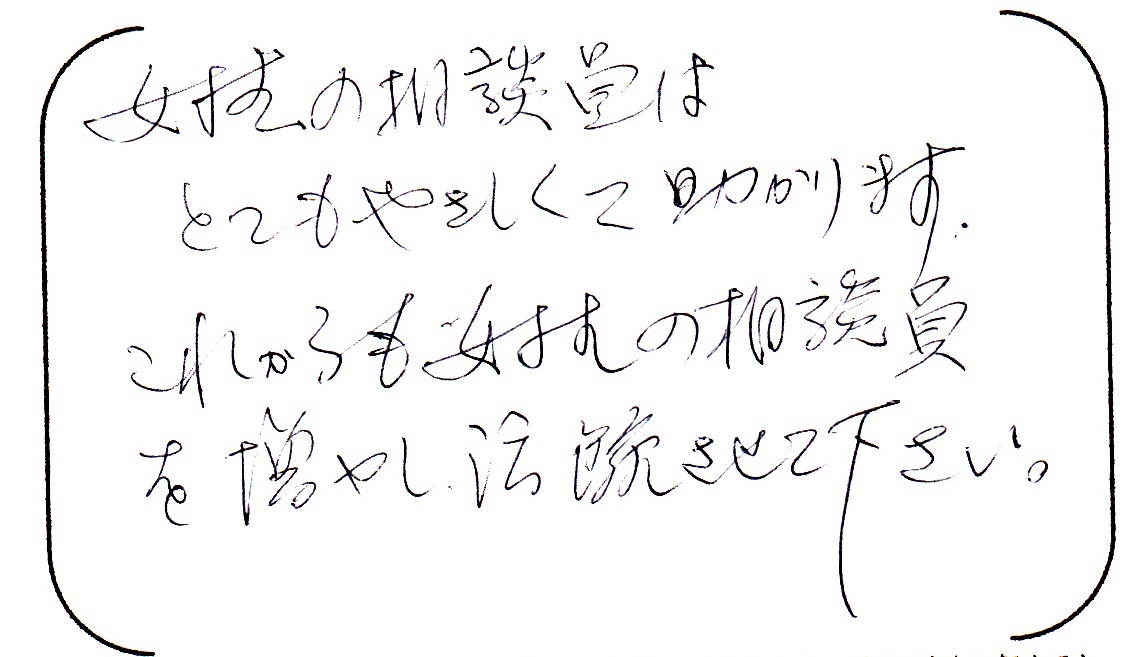 女性の相談員は
とてもやさしくて助かります.
これからも女性の相談員
を増やし、活躍させて下さい。